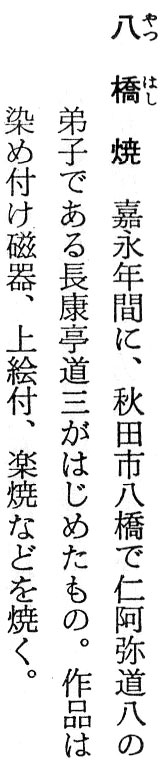 八橋焼　嘉永年間に、秋田市八橋で仁阿弥道八の
弟子である長康亭道三がはじめたもの。作品は
染め付け磁器、上絵付、楽焼などを焼く。
やつ
はし